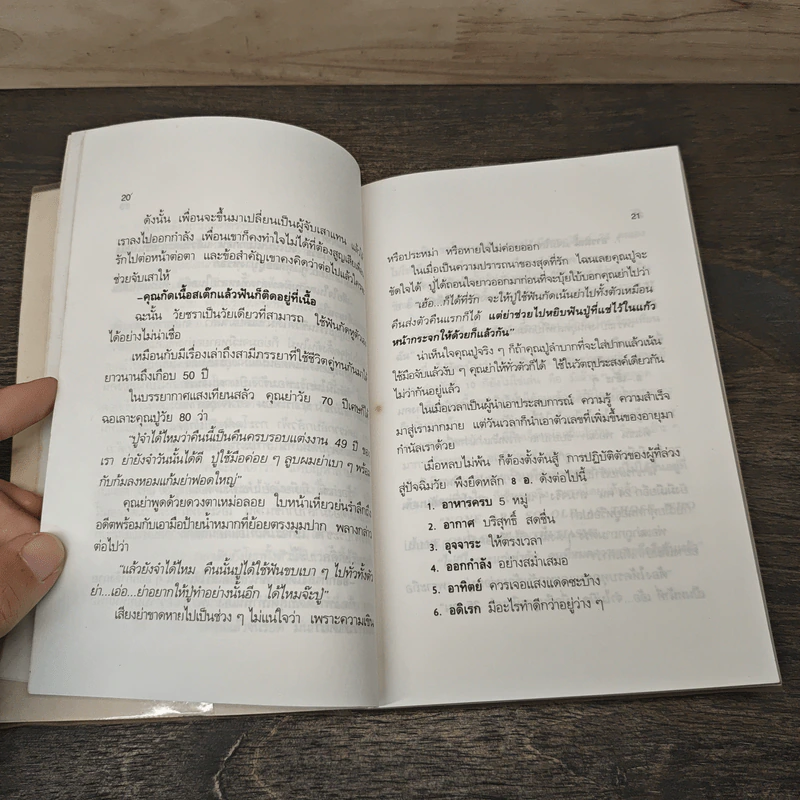 20
ดังนั้น เพื่อนจะขึ้นมาเปลี่ยนเป็นผู้จับเสาแทน แล้ว
เราลงไปออกกำลัง เพื่อนเขาก็คงทำใจไม่ได้ที่ต้องสูญเสีย
รักไปต่อหน้าต่อตา และข้อสำคัญเขาคงคิดว่าต่อไปแล้ว
ช่วยจับเสาให้
-คุณกัดเนื้อสเต๊กแล้วฟันก็ติดอยู่ที่เนื้อ
ฉะนั้น วัยชราเป็นวัยเดียวที่สามารถ ใช้ฟันกัดหูตัวเอง
ได้อย่างไม่น่าเชื่อ
เหมือนกับมีเรื่องเล่าถึงสามีภรรยาที่ใช้ชีวิตคู่ทนกันมา
ยาวนานถึงเกือบ 50 ปี
ในบรรยากาศแสงเทียนสลัว คุณย่าวัย 70 ปีเศษ
ฉอเลาะคุณปู่วัย 80 ว่า
"ปู่จำได้ไหมว่าคืนนี้เป็นคืนครบรอบแต่งงาน 49 ปี ของ
เรา ย่ายังจำวันนั้นได้ดี ปู่ใช้มือค่อย ๆ ลูบผมย่าเบา ๆ พร้อม
กับก้มลงหอมแก้มย่าฟอดใหญ่"
คุณย่าพูดด้วยดวงตาเหม่อลอย ใบหน้าเหี่ยวย่นรำลึกถึง
อดีตพร้อมกับเอามือป้ายน้ำหมากที่ย้อยตรงมุมปาก พลางกล่าว
ต่อไปว่า
"แล้วยังจำได้ไหม คืนนั้นปู่ได้ใช้ฟันขบเบา ๆ ไปทั่วทั้งตัว
ย่า...เอ่อ...ย่าอยากให้ปู่ทำอย่างนั้นอีก ได้ไหมจ๊ะปู่"
เสียงย่าขาดหายไปเป็นช่วง ๆ ไม่แน่ใจว่า เพราะความเขิน
21
หรือประหม่า หรือหายใจไม่ค่อยออก
ในเมื่อเป็นความปรารถนาของสุดที่รัก ไฉนเลยคุณปู่จะ
ขัดใจได้ ปู่ได้ถอนใจยาวออกมาก่อนที่จะบุ้ยใบ้บอกคุณย่าไปว่า
"เฮ้อ...ก็ได้ที่รัก จะให้ปู่ใช้ฟันกัดเน้นย่าไปทั้งตัวเหมือน
คืนส่งตัวคืนแรกก็ได้ แต่ย่าช่วยไปหยิบฟันปู่ที่แช่ไว้ในแก้ว
หน้ากระจกให้ด้วยก็แล้วกัน"
น่าเห็นใจคุณปู่จริง ๆ ก็ถ้าคุณปู่ลำบากที่จะใส่ปากแล้วเน้น
ใช้มือจับแล้วงับ ๆ คุณย่าให้ทั่วตัวก็ได้ ใช้ในวัตถุประสงค์เดียวกัน
ไม่ว่ากันอยู่แล้ว
ในเมื่อเวลาเป็นผู้นำเอาประสบการณ์ ความรู้ ความสำเร็จ
มาสู่เรามากมาย แต่วันเวลาก็นำเอาตัวเลขที่เพิ่มขึ้นของอายุมา
กำนัลเราด้วย
เมื่อหลบไม่พ้น ก็ต้องตั้งต้นสู้ การปฏิบัติตัวของผู้ที่ล่วง
สู่ปัจฉิมวัย พึงยึดหลัก 8 อ. ดังต่อไปนี้
1. อาหารครบ 5 หมู่
2. อากาศ บริสุทธิ์ สดชื่น
3. อุจจาระ ให้ตรงเวลา
4. ออกกำลัง อย่างสม่ำเสมอ
5. อาทิตย์ ควรเจอแสงแดดซะบ้าง
6. อดิเรก มีอะไรทำดีกว่าอยู่ว่าง ๆ